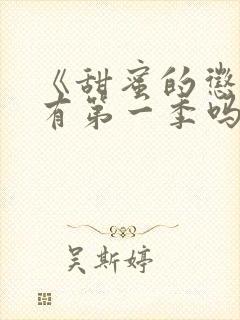 《甜蜜的惩
有第一季吗
吴斯婷